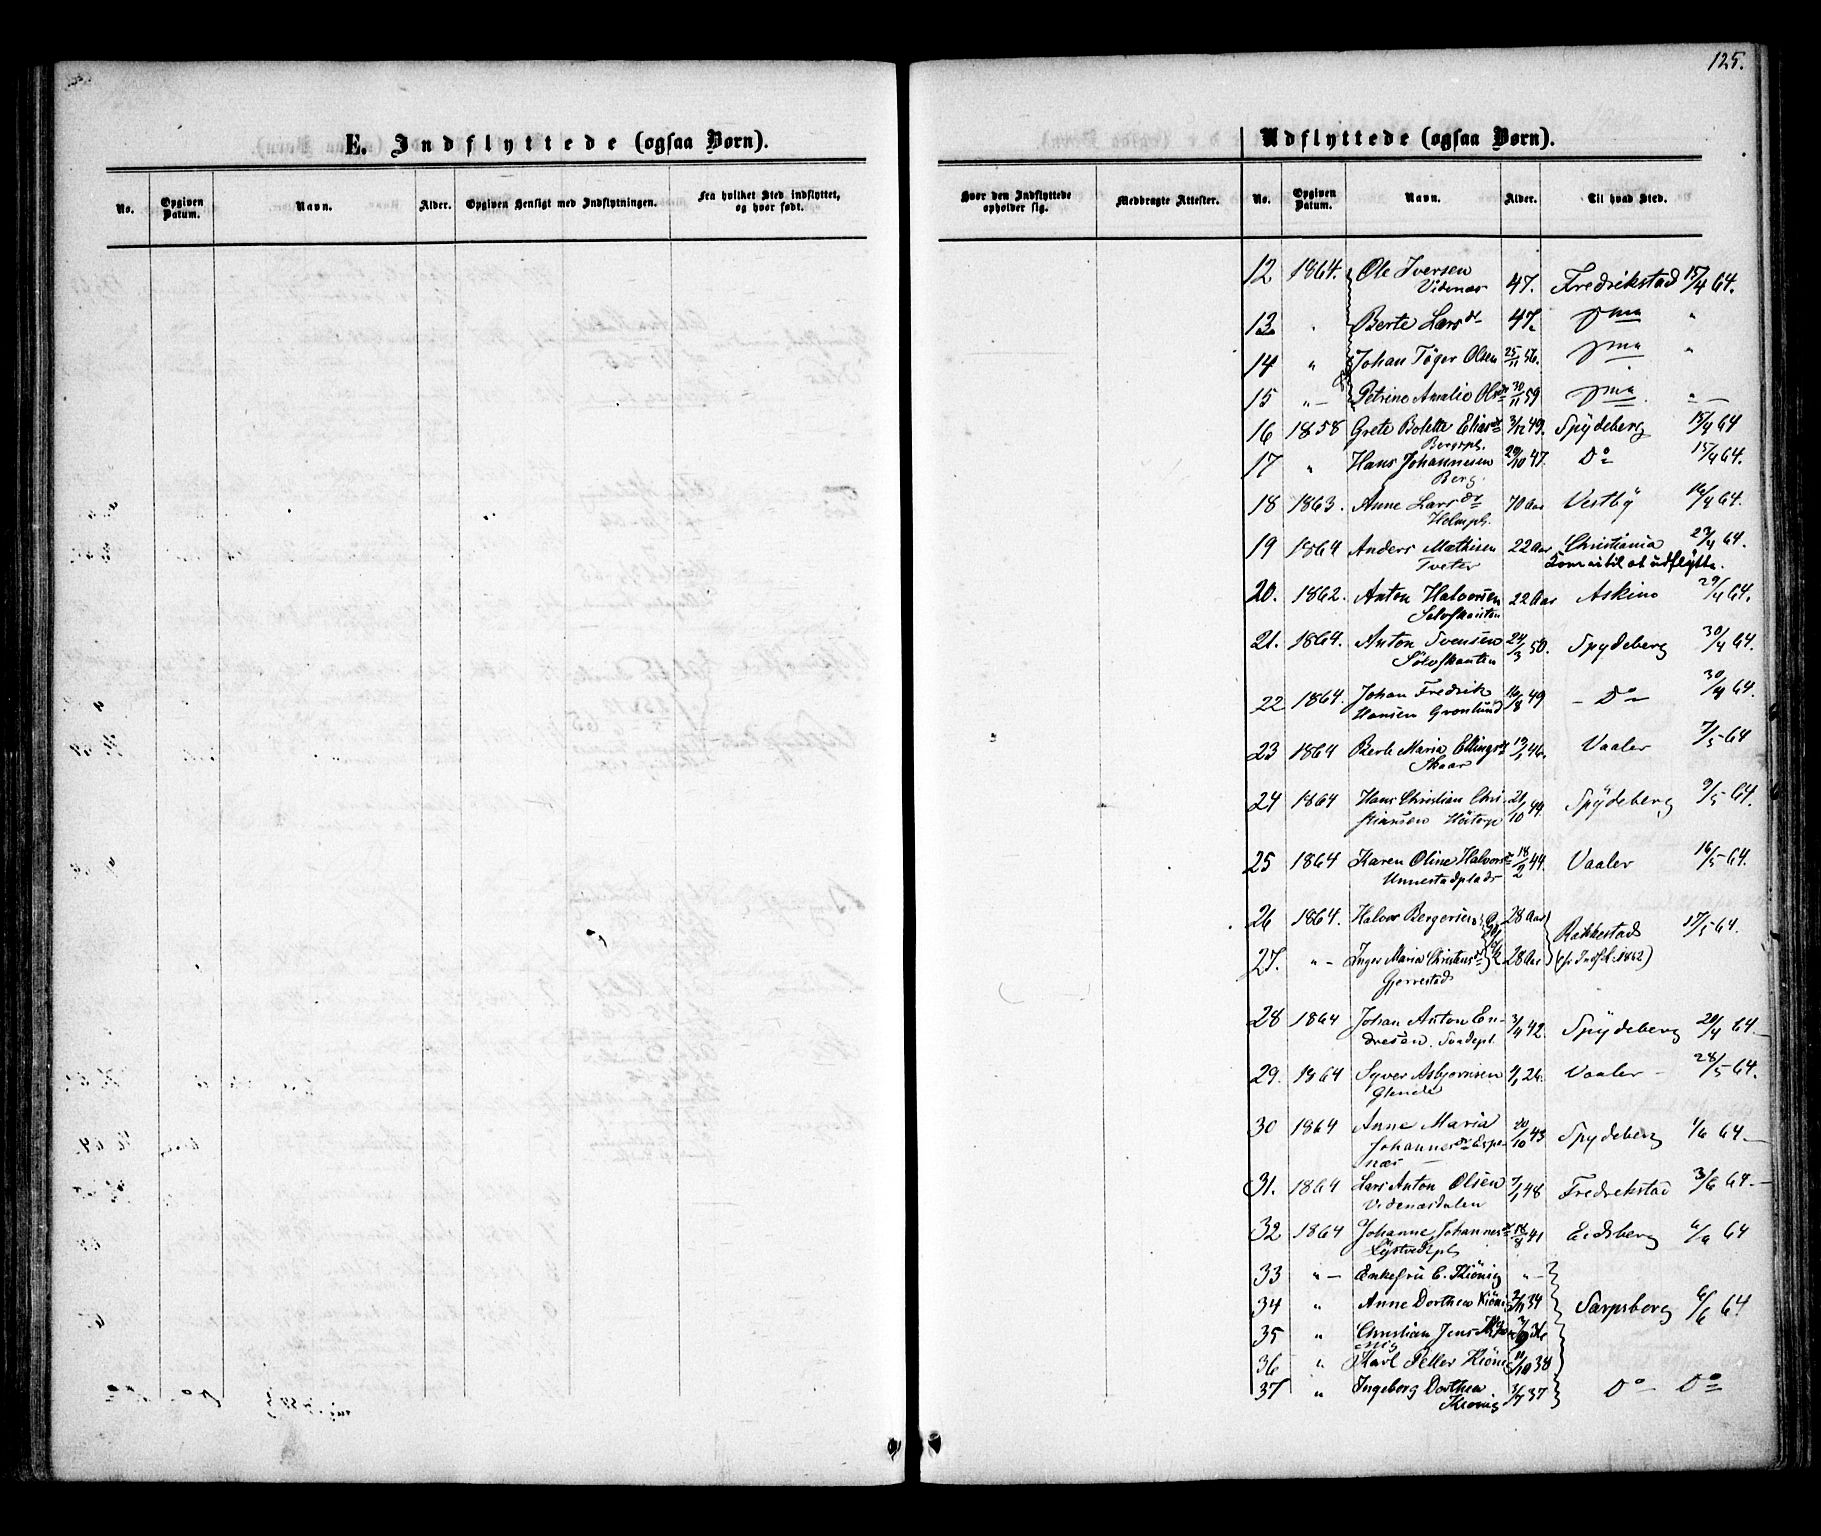 125.
E. Indflyttede (ogsaa Børn).
No. Opgiven Datum. Navn. Alder. Opgiven Hensigt med Indflytningen. Fra hvilket Sted indflyttet, og hvor født.
Udflyttede (ogsaa Børn).
Hvor den Indflyttede opholder sig. Medbragte Attester. No. Opgiven Datum. Navn. Alder. Til hvad Sted.
12 1864. Ole Iversen 47. Fredrikstad 15/4 64.
Videnæs
13 " Berte Larsdr 47. "
14 " Johan Tøger Olsen 25/11 56. "
15 " — Petrine Amalie Olsdr 30/11 59 " —
16 1858 Grete Bolette Eliasdr 3/12 49. Spydeberg 15/4 64
Bergspl.
17 " Hans Johannesen 29/10 47. Do 15/4 64.
Berg.
18 1863. Anne Larsdr 70 Aar Vestby 16/4 64.
Holmpl.
19 1864 Anders Mathisen 22 Aar Christiania 23/4 64.
Tveter at udflytte.
20. 1862. Anton Halvorsen 22 Aar Askim 29/4 64.
21. 1864. Anton Svensen 24/3 50. Spydeberg 30/4 64.
22 1864. Johan Fredrik 16/8 49 — Do — 30/4 64.
Hansen Grønlund
23 1864 Berte Maria Ellingsdr 19/1 46. Vaaler 7/5 64
Skaar
24 1864 Hans Christian Chri- 21/10 44. Spydeberg 9/5 64.
stiansen
25 1864 Karen Oline Halvorsdr 18/2 44. Vaaler 16/5 64.
Unnestadplads
26 1864. Halvor Bergersen 28 Aar Rakkestad 17/5 64.
27. " — Inger Maria Christensdr 28 Aar (fr Indfl. 1862)
Gjerrestad
28 1864 Johan Anton En- 3/4 42. Spydeberg 20/4 64 —
dresen.
29. 1864 Syver Asbjørnsen 9/1 26. Vaaler — 28/5 64.
Glende
30 1864 Anne Maria 20/10 43 Spydeberg 1/6 64. —
Johannesdr Espe-
næs —
31. 1864 Lars Anton Olsen 7/1 48 Fredrekstad 3/6 64. —
Videnæsdalen
32 1864 Johanne Johannesdr 18/8 41 Eidsberg 64
33 " — Enkefru C. Kiönig " —
34 " Anne Dorthea Kiönig 34 Sarpsborg 6/6 64
35 " Christian Jens
36 " Karl Peller Kiönig 11/10 38
37 " Ingeborg Dorthea 3/7 37 Do — Do
Kiönig